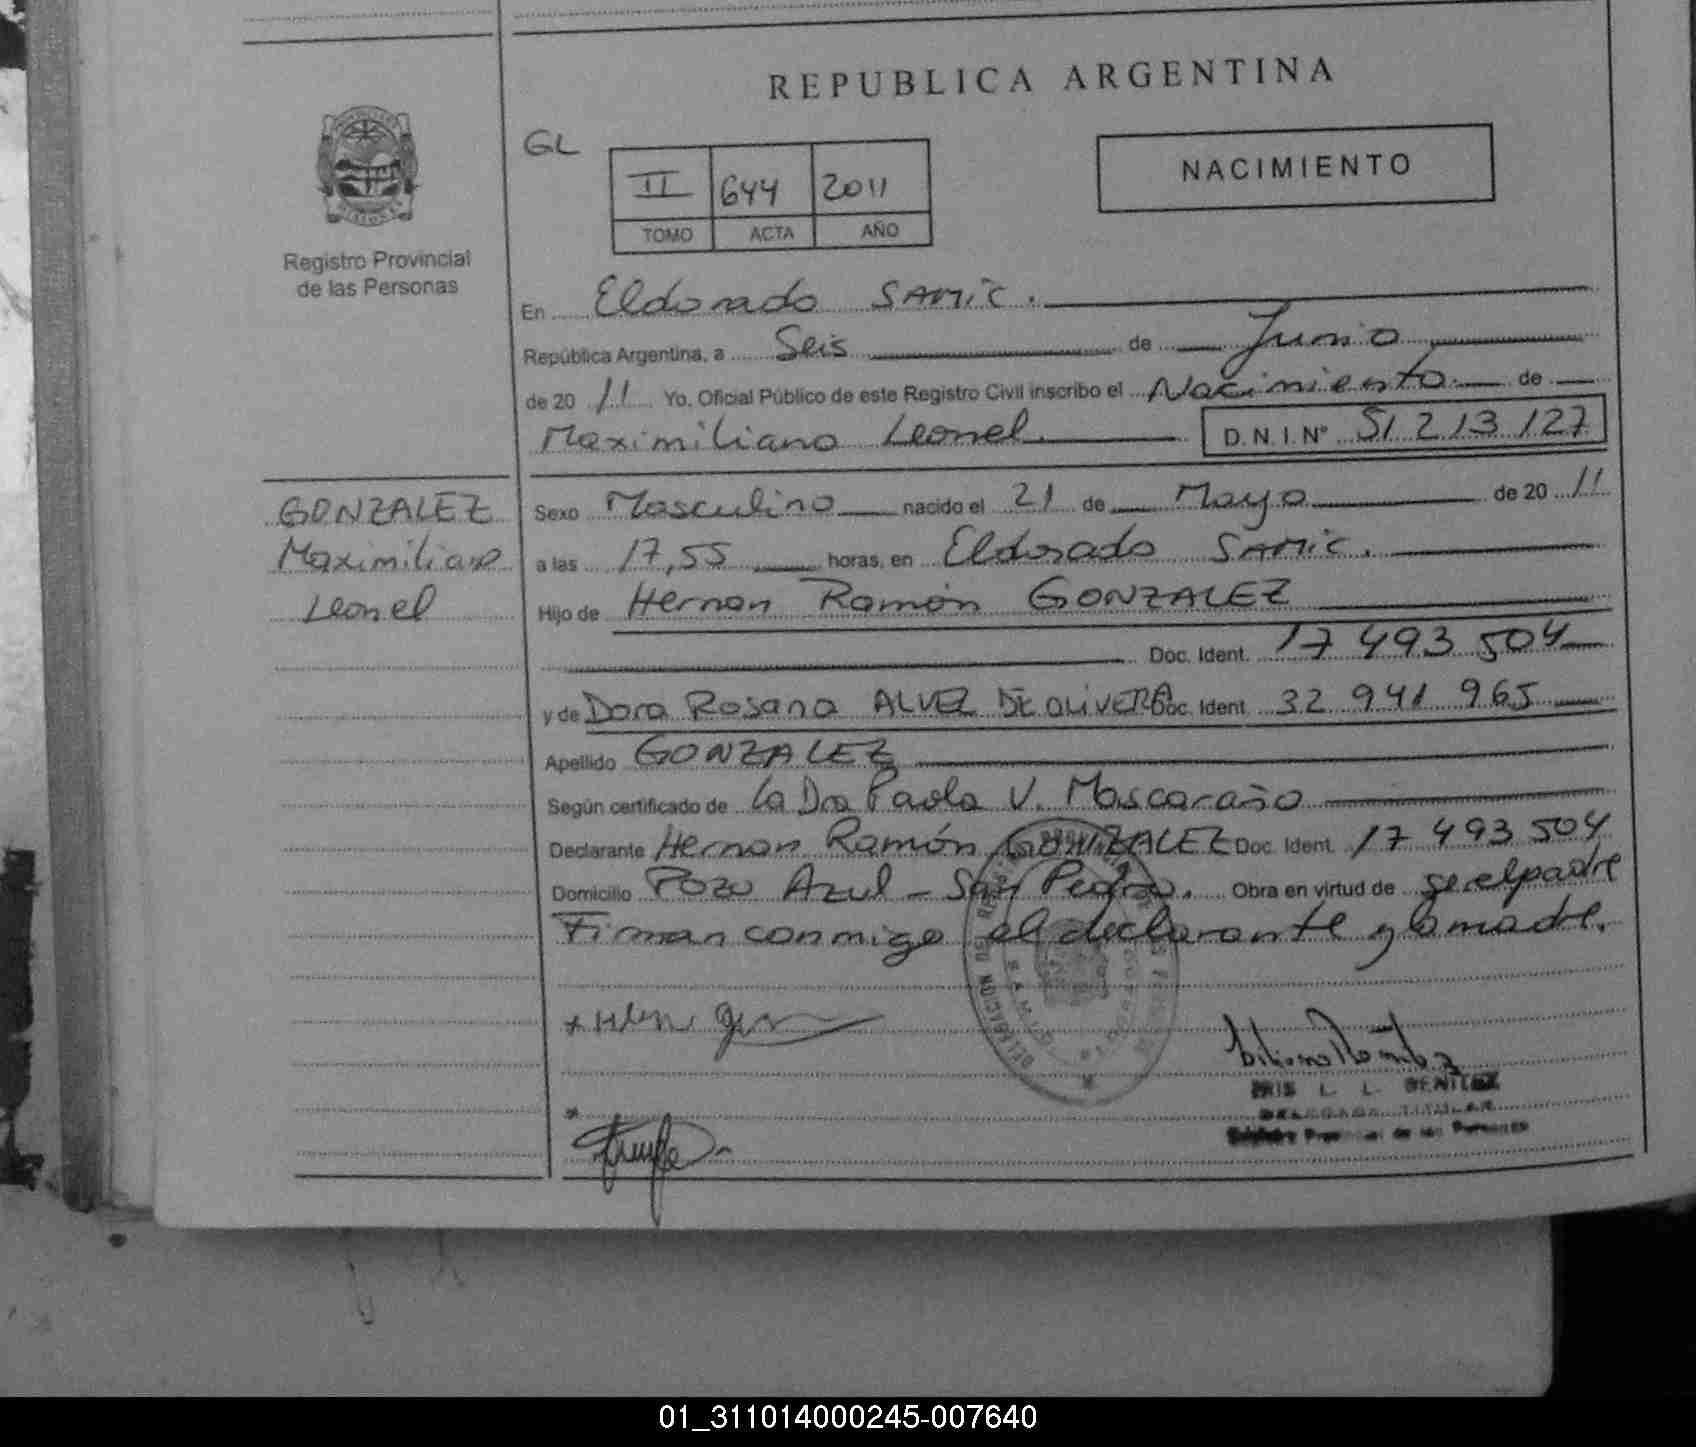 REPUBLICA ARGENTINA
GL
NACIMIENTO
II 644 2011
TOMO ACTA AÑO
Registro Provincial
de las Personas
En Eldorado SAMIC.
República Argentina, a Seis de Junio
de 20 11 Yo, Oficial Público de este Registro Civil inscribo el Nacimiento de
Maximiliano Leonel. D.N.I.Nº 51 213 127
GONZALEZ
Maximiliano
Leonel
Sexo Masculino nacido el 21 de Mayo de 20 11
a las 17,55 horas, en Eldorado SAMIC.
Hijo de Hernan Ramón GONZALEZ
Doc. Ident. 17 493 504
y de Dora Rosana ALVEZ DE OLIVERA Doc. Ident. 32 941 965
Apellido GONZALEZ
Según certificado de la Dra Paola V. Mascaraño
Declarante Hernan Ramón GONZALEZ Doc. Ident. 17 493 504
Domicilio Pozo Azul - San Pedro. Obra en virtud de ser el padre
Firman conmigo el declarante y la madre.
IRIS L. L. BENITEZ
DELEGADA TITULAR
Registro Provincial de las Personas
01_311014000245-007640